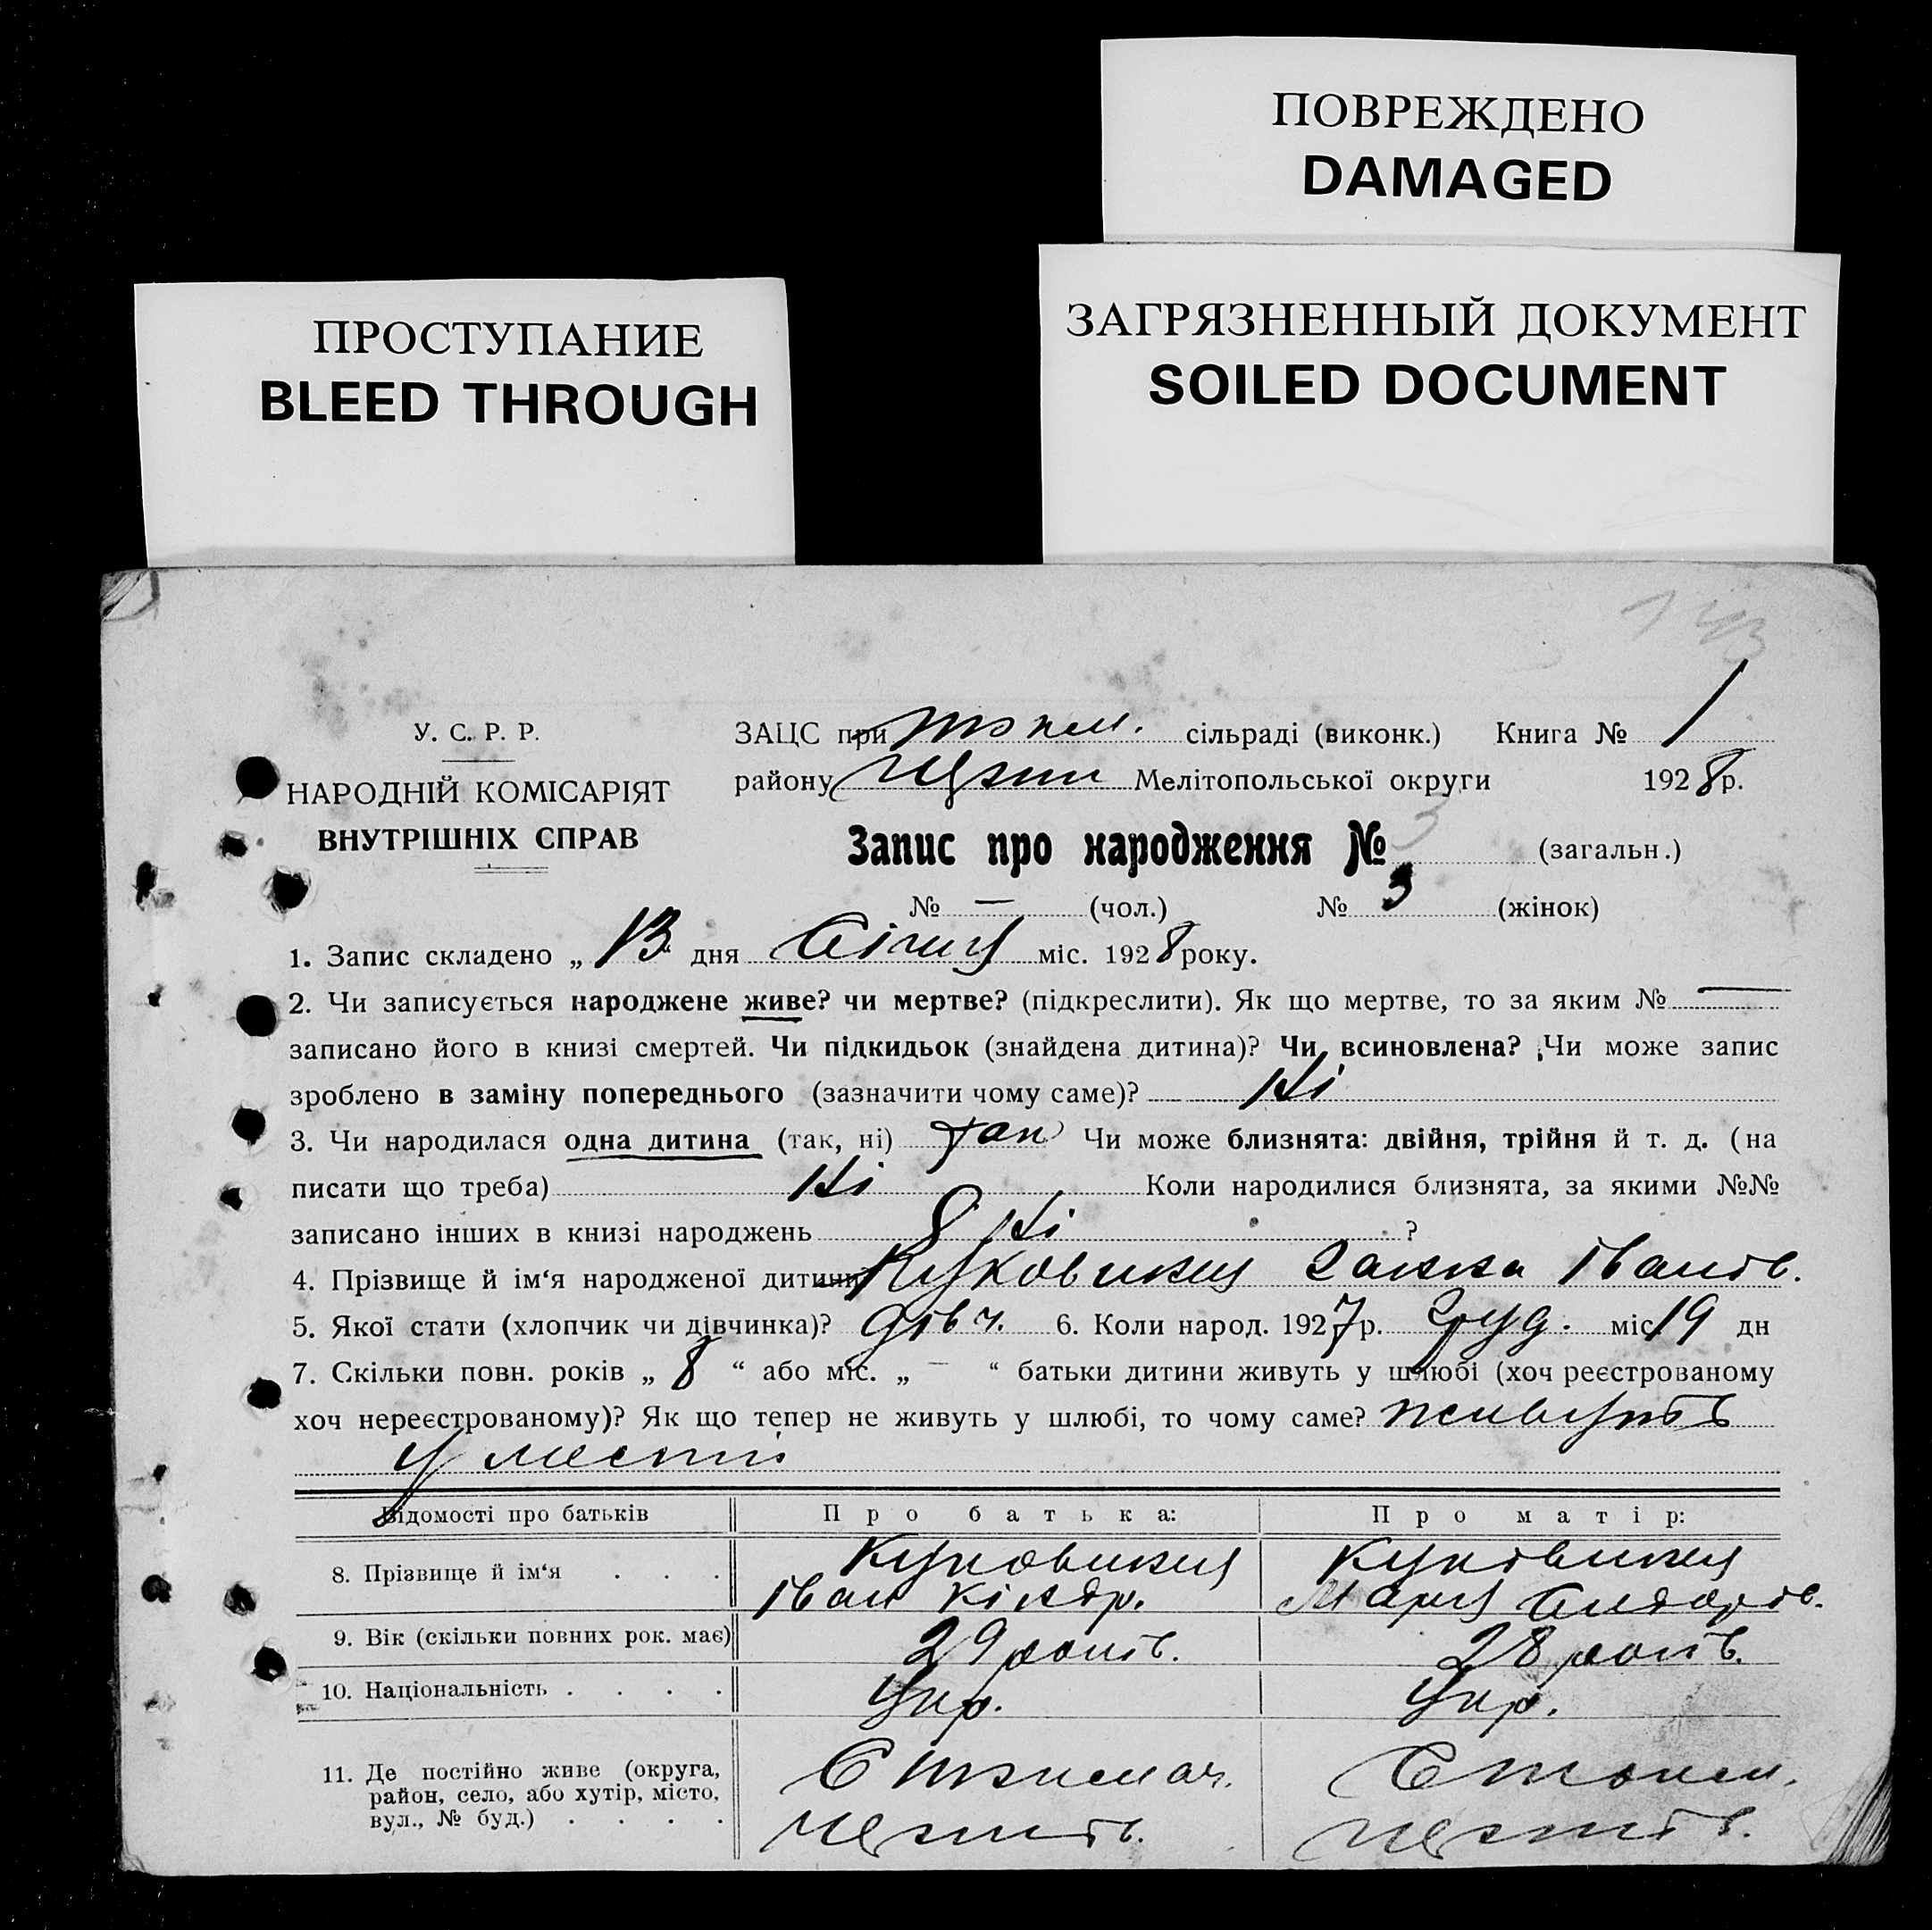 ПОВРЕЖДЕНО
DAMAGED
ПРОСТУПАНИЕ
BLEED THROUGH
ЗАГРЯЗНЕННЫЙ ДОКУМЕНТ
SOILED DOCUMENT
У. С. Р. Р.
НАРОДНІЙ КОМІСАРІЯТ
ВНУТРІШНІХ СПРАВ
ЗАЦС при сільраді (виконк.) Книга № 1
району Мелітопольської округи 1928 р.
Запис про народження № 3 (загальн.)
№ — (чол.) № 3 (жінок)
1. Запис складено „13“ дня Січня міс. 1928 року.
2. Чи записується народжене живе? чи мертве? (підкреслити). Як що мертве, то за яким № —
записано його в книзі смертей. Чи підкидьок (знайдена дитина)? Чи всиновлена? Чи може запис
зроблено в заміну попереднього (зазначити чому саме)? Ні
3. Чи народилася одна дитина (так, ні) так Чи може близнята: двійня, трійня й т. д. (на
писати що треба) Ні Коли народилися близнята, за якими №№
записано інших в книзі народжень Ні ?
4. Прізвище й ім‘я народженої дитини Ганна Іванів.
5. Якої стати (хлопчик чи дівчинка)? дівч. 6. Коли народ. 1927 р. Груд. міс 19 дн
7. Скільки повн. років „ 8 “ або міс. „ — “ батьки дитини живуть у шлюбі (хоч реєстрованому
хоч нереєстрованому)? Як що тепер не живуть у шлюбі, то чому саме? живуть
у
Відомості про батьків Про батька: Про матір:
8. Прізвище й ім‘я . . .
Іван Марія
9. Вік (скільки повних рок. має) 29 років. 28 років.
10. Національність . . . . Укр. Укр.
11. Де постійно живе (округа,
район, село, або хутір, місто,
вул., № буд.) . . . .